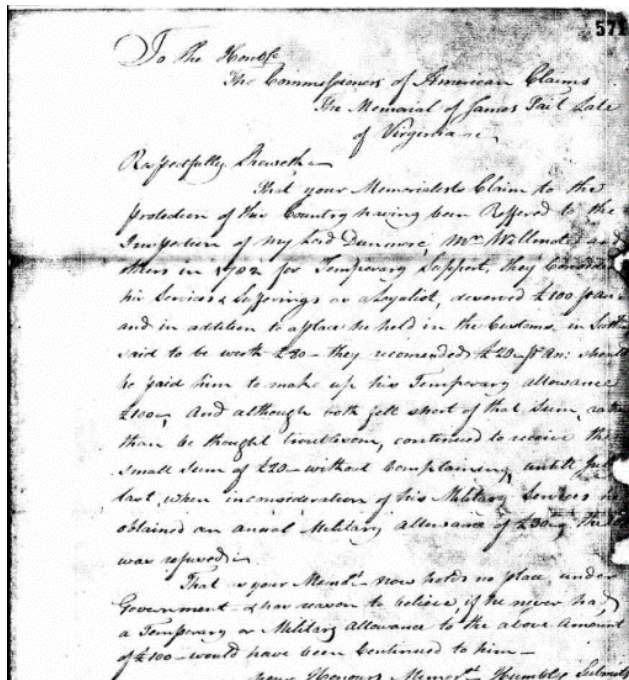 571
To the Honble
The Commissioners of American Claims
The Memorial of James Tait Late
of Virginia
Respectfully Sheweth
That your Memorialists Claim to the
protection of this Country having been Reffered to the
Inspection of my Lord Dunmore, Mr Willmot and
others in 1782 for Temporary Support, they
his Services & Sufferings as a Loyalist, deserved £100
and in addition to a place he held in the Customs, in
said to be worth £80 they recomended £20 pr An: should
be paid him to make up his Temporary allowance
£100, And although both fell short of that Sum,
than be thought troublesom, continued to receive the
small Sum of £20 without Complaining, untill
last, when inconsideration of his Military Services he
obtained an anual Military allowance of £30
was refused
That as your Memst now holds no place, under
Government & has reason to believe, if he never had
a Temporary or Military allowance to the above Amount
of £100 would have been Continued to him
your Honours Memost Humbly